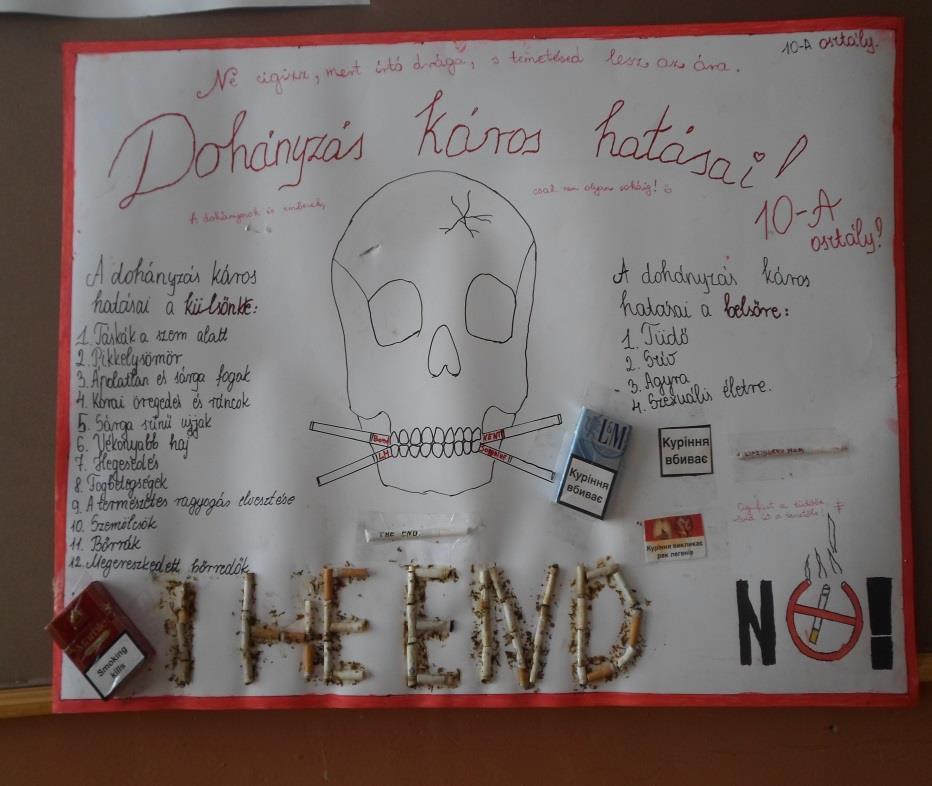 10-A osztály.
Ne cigizz, mert írtó drága, s temetésed lesz az ára.
Dohányzás káros hatásai!
A dohányosok is emberek,
csak nem olyan sokáig!
10-A
osztály!
A dohányzás káros
hatásai a külsőnkre:
1. Táskák a szem alatt
2. Pikkelysömör
3. Ápolatlan és sárga fogak
4. Korai öregedés és ráncok
5. Sárga színű ujjak
6. Vékonyabb haj
7. Hegesedés
8. Fogbetegségek
9. A természetes ragyogás elvesztése
10. Szemölcsök
11. Bőrrák
12. Megereszkedett bőrredők
A dohányzás káros
hatásai a belsőre:
1. Tüdő
2. Szív
3. Agyra
4. Szexuális életre.
Bond
LM
KENT
L&M
Куріння
вбиває
Куріння
вбиває
THE END
Куріння викликає
рак легенів
Smoking
kills
THE END
NO!